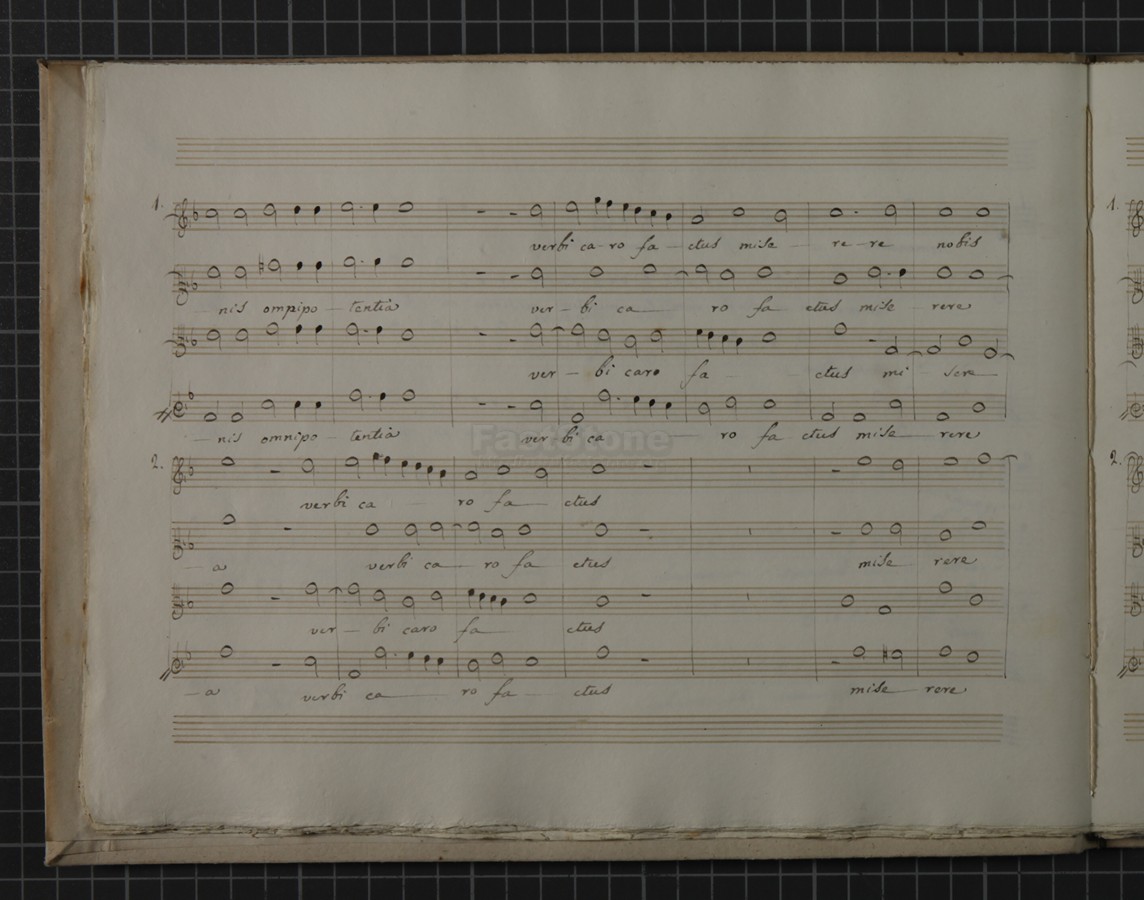 1. verbi ca-ro fa-ctus mise-re-re nobis 1.
-nis ompipo-tentia ver-bi ca ro fa ctus mise-rere
ver-bi caro fa-ctus mi-sere
-nis omnipo-tentia ver bi ca ro fa ctus mise rere
2. verbi ca ro fa ctus 2.
-a verbi ca ro fa ctus mise rere
ver-bi caro fa ctus
-a verbi ca ro fa ctus mise rere